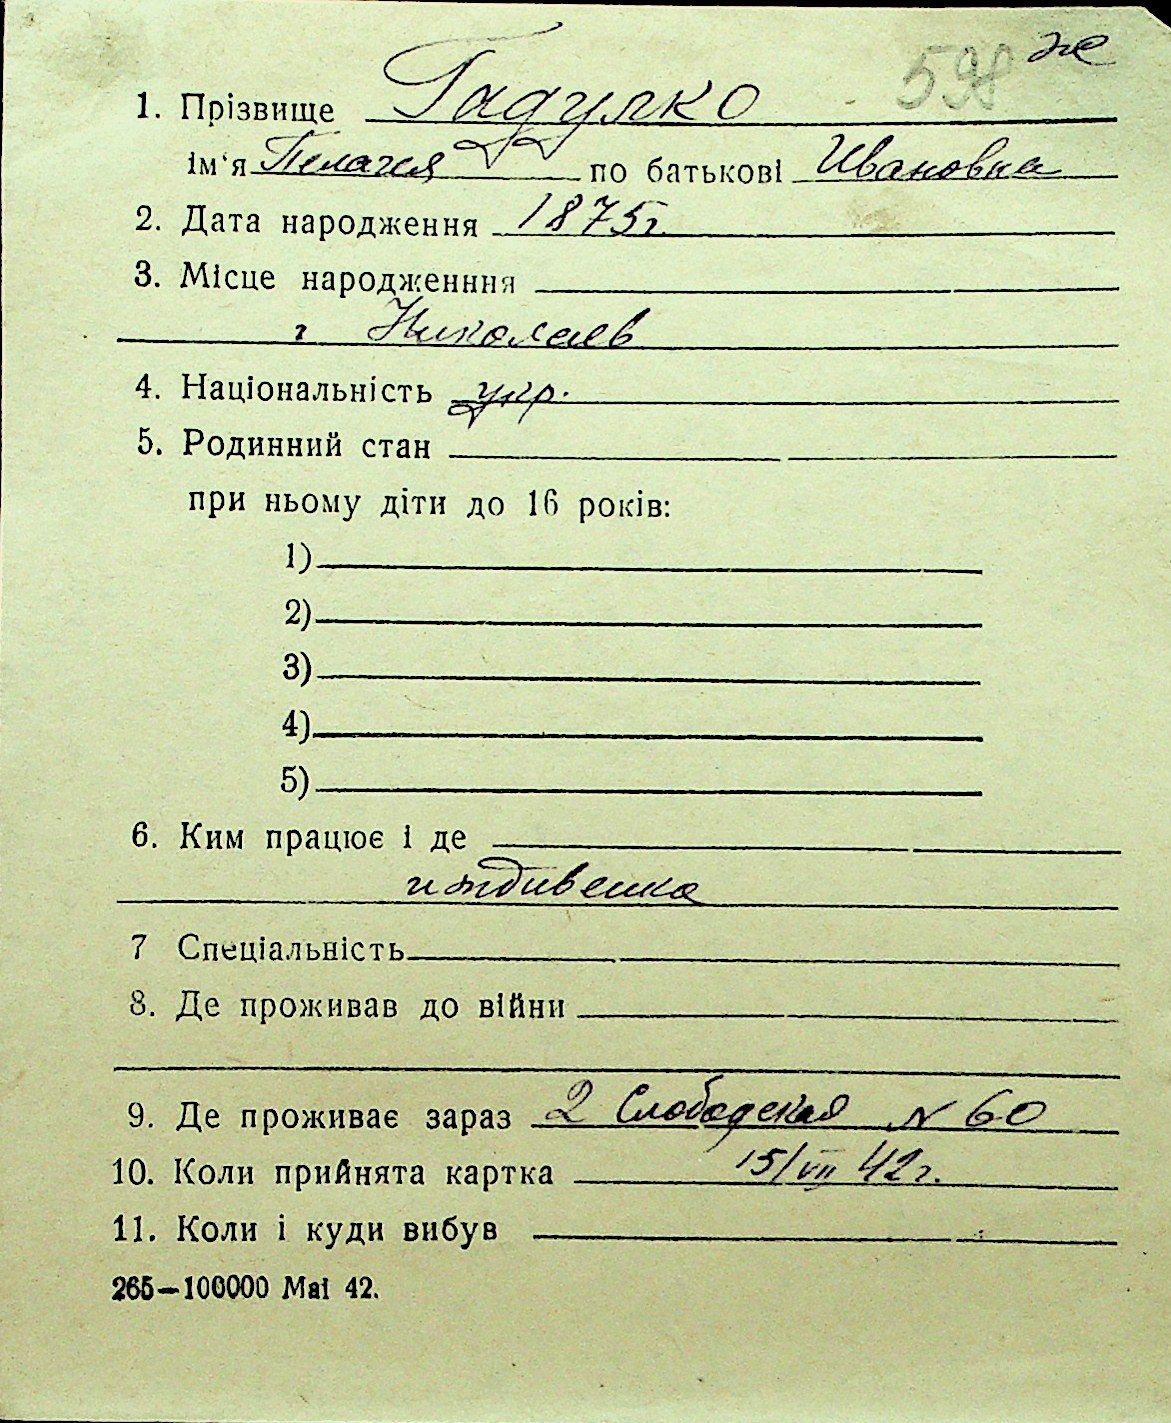 598 же
1. Прізвище Гадулко
ім'я Пелагея по батькові Ивановна
2. Дата народження 1875г.
3. Місце народженння
г Николаев
4. Національність укр.
5. Родинний стан
при ньому діти до 16 років:
1)
2)
3)
4)
5)
6. Ким працює і де
иждивенка
7 Спеціальність
8. Де проживав до війни
9. Де проживає зараз 2 Слободская № 60
10. Коли прийнята картка 15/VII 42г.
11. Коли і куди вибув
265—100000 Маі 42.